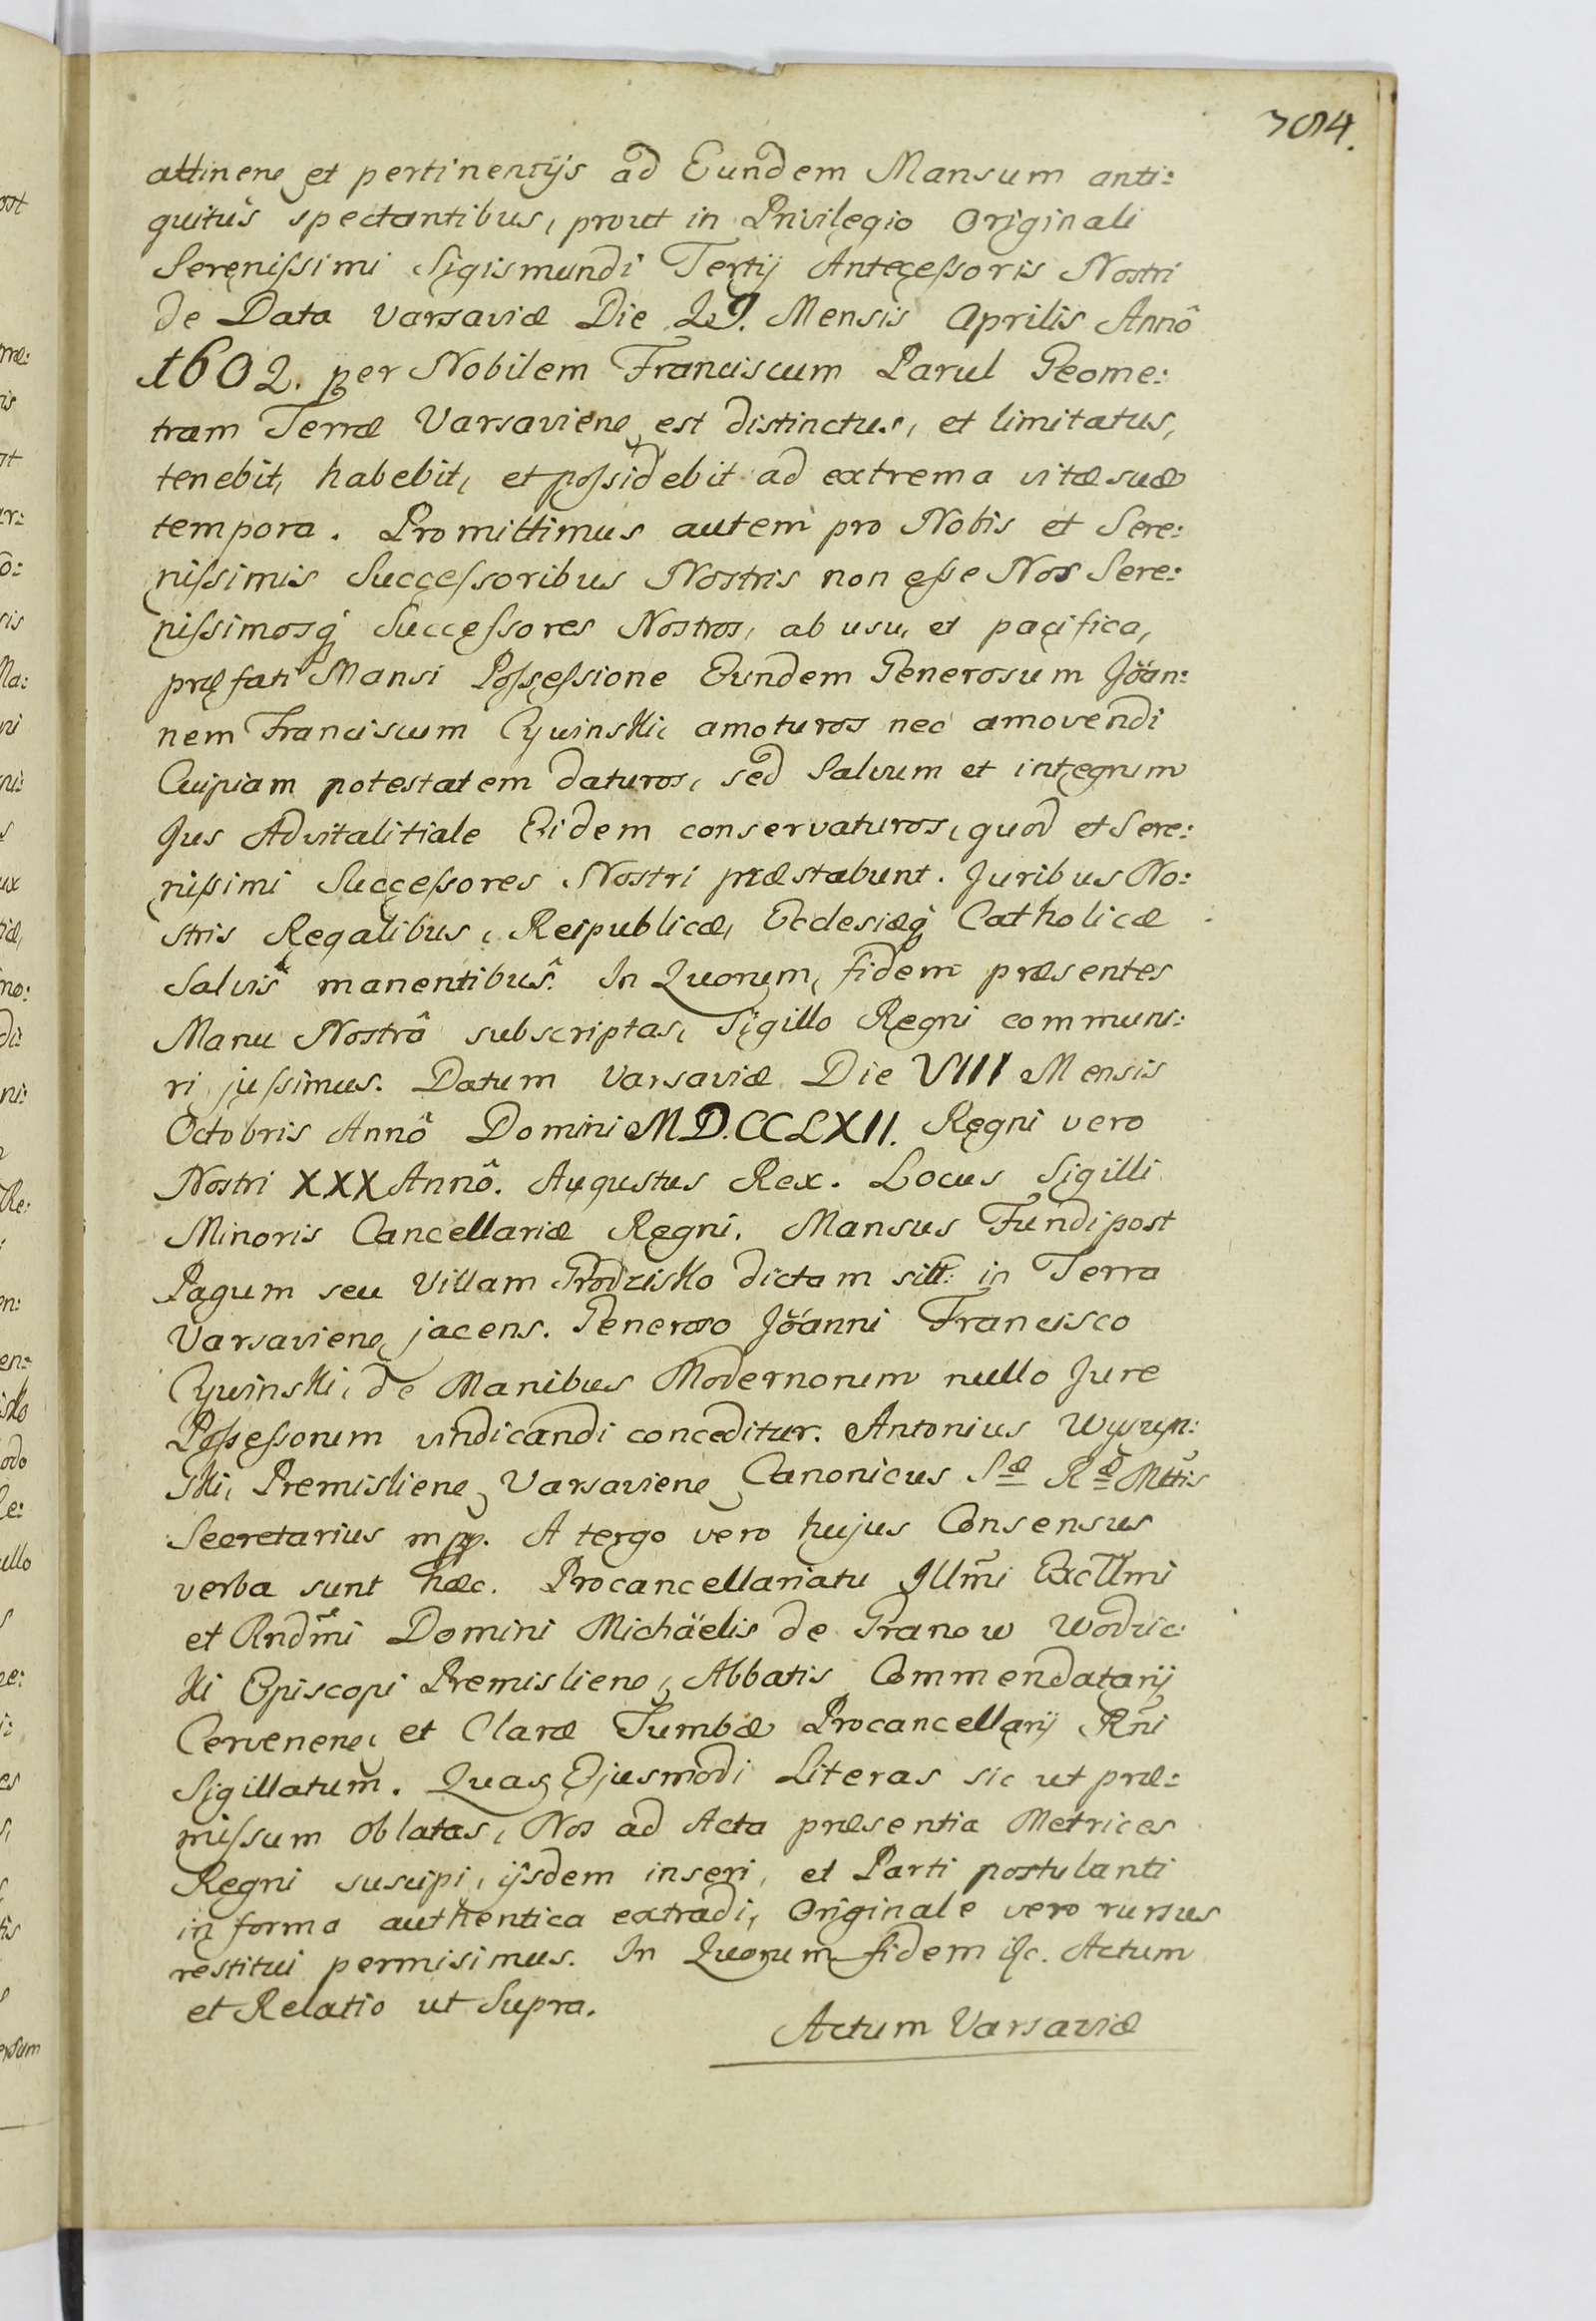 704.
attinen et pertinentijs ad Eundem Mansum anti:
quitus spectantibus, prout in Privilegio Originali
Serenissimi Sigismundi Tertij Antecessoris Nostri
de Data Varsaviæ Die 29. Mensis Aprilis Annô
1602. per Nobilem Franciscum Parul Geome:
tram Terræ Varsavien est distinctus, et limitatus,
tenebit, habebit, et possidebit ad extrema vitæ suæ
tempora. Promittimus autem pro Nobis et Sere:
nissimis Successoribus Nostris non esse Nos Sere:
nissimosq Successores Nostros, ab usu, et pacifica,
præfati Mansi Possessione Eundem Generosum Jŏan:
nem Franciscum Cywinski, amoturos nec amovendi
Cuipiam potestatem daturos, sed Salvum et integrum
Jus Advitalitiale Eidem conservaturos, quod et Sere:
nissimi Successores Nostri præstabunt. Juribus No:
stris Regalibus, Reipublicæ, Ecclesiæq Catholicæ
Salvis manentibus. In Quorum, fidem præsentes
Manu Nostrâ subscriptas, Sigillo Regni communi:
ri jussimus. Datum Varsaviæ Die VIII Mensis
Octobris Annô Domini MD.CCLXII. Regni vero
Nostri XXX Annô. Augustus Rex. Locus Sigilli
Minoris Cancellariæ Regni. Mansus Fundi post
Pagum seu Villam Grodzisko dictam sitt: in Terra
Varsavien jacens. Generoso Jŏanni Francisco
Cywinski, de Manibus Modernorum nullo Jure
Possessorum vindicandi conceditur. Antonius Wysyn:
ski, Premislien, Varsavien Canonicus Sæ Ræ Mttis
Secretarius mpp. A tergo vero hujus Consensus
verba sunt hæc. Procancellariatu Illmi Excllmi
et Rndmi Domini Michäelis de Granow Wodzic:
ki Episcopi Premislien, Abbatis Commendatarij
Cervenen, et Claræ Tumbæ Procancellarij Rni
Sigillatum. Quas Ejusmodi Literas sic ut præ:
missum oblatas, Nos ad Acta præsentia Metrices
Regni suscipi, ijsdem inseri, et Parti postulanti
in forma authentica extradi, Originale vero rursus
restitui permisimus. In Quorum fidem &c. Actum
et Relatio ut Supra.
Actum Varsaviæ